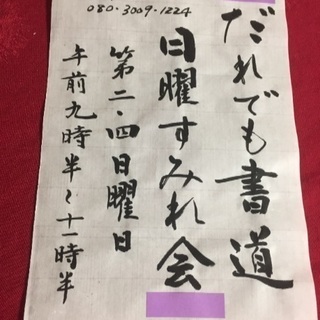 080・3009・1224
だれでも書道
日曜すみれ会
第二・四日曜日
午前九時半〜十一時半